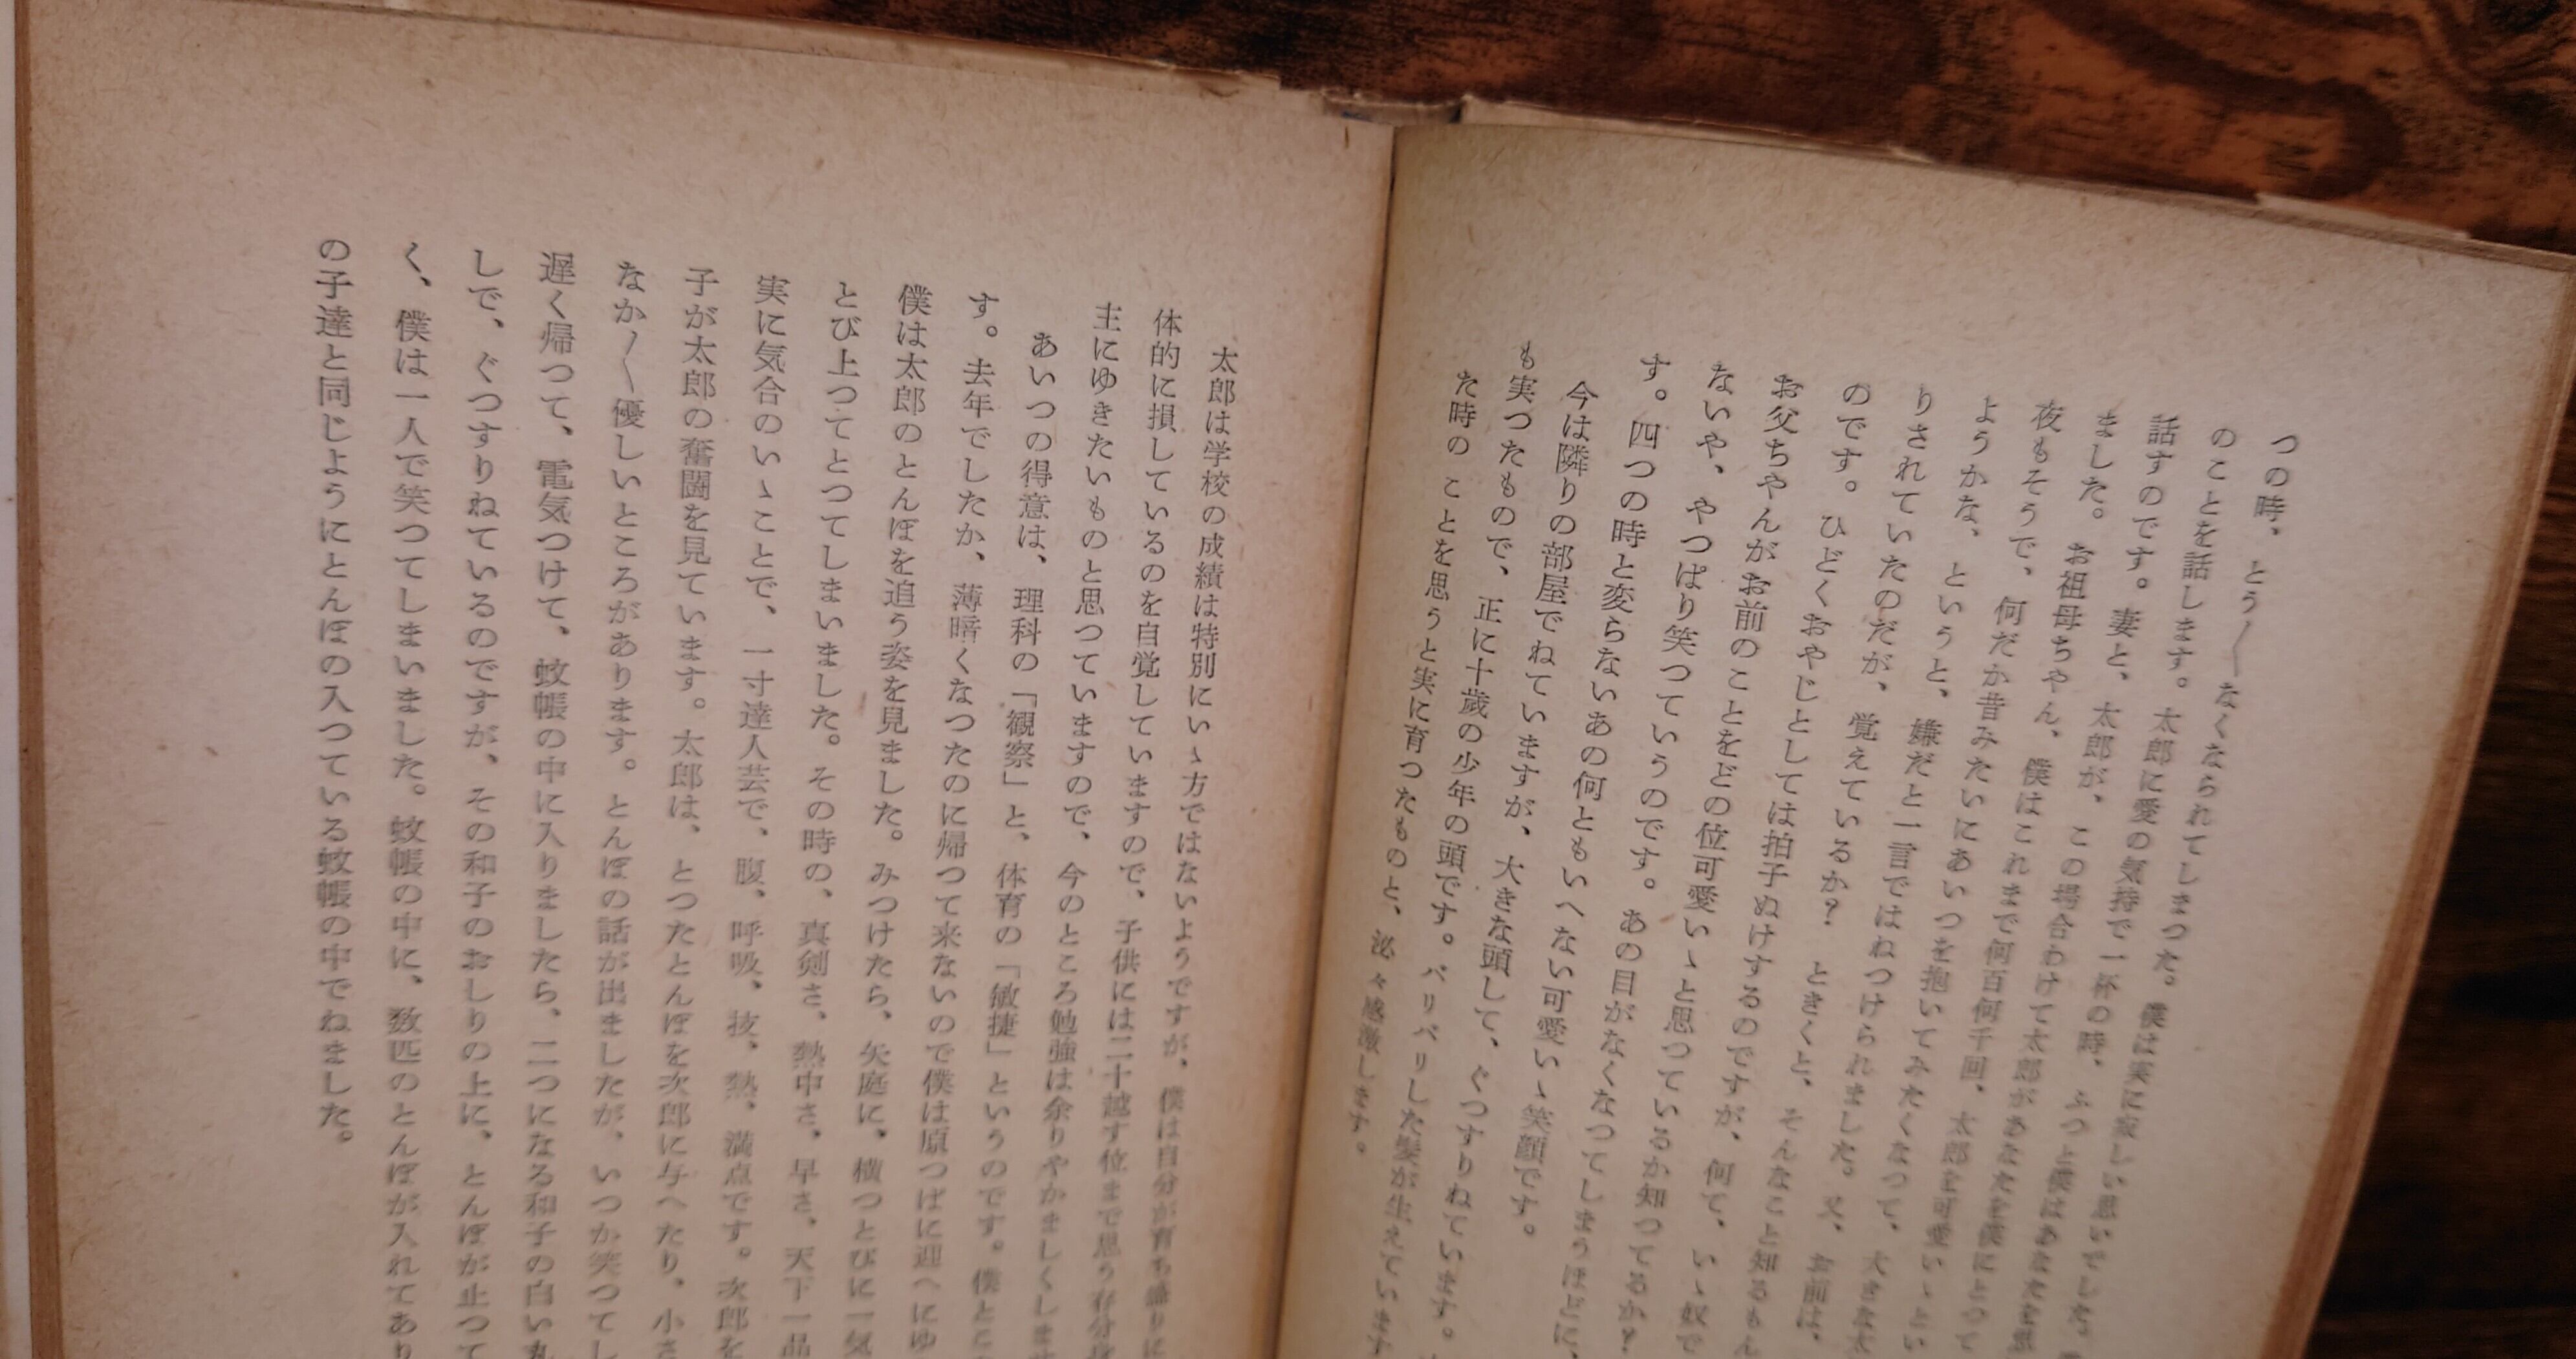 つの時、とう〳〵なくなられてしまつた。僕は実に寂しい思いでした。
のことを話します。太郎に愛の気持で一杯の時、ふつと僕はあなたを思
話すのです。妻と、太郎が、この場合わけて太郎があなたを僕にとつて
ました。お祖母ちやん、僕はこれまで何百何千回、太郎を可愛いゝとい
夜もそうで、何だか昔みたいにあいつを抱いてみたくなつて、大きな太
ようかな、というと、嫌だと一言ではねつけられました。又、お前は、
りされていたのだが、覚えているか？ときくと、そんなこと知るもん
のです。ひどくおやじとしては拍子ぬけするのですが、何て、いゝ奴で
お父ちやんがお前のことをどの位可愛いゝと思つているか知つてるか？
ないや、やつぱり笑つていうのです。あの目がなくなつてしまうほどに、
す。四つの時と変らないあの何ともいへない可愛いゝ笑顔です。
今は隣りの部屋でねていますが、大きな頭して、ぐつすりねています。
も実つたもので、正に十歳の少年の頭です。バリバリした髪が生えています
た時のことを思うと実に育つたものと、泌々感激します。
太郎は学校の成績は特別にいゝ方ではないようですが、僕は自分が育ち盛りに
体的に損しているのを自覚していますので、子供には二十越す位まで思う存分身
主にゆきたいものと思つていますので、今のところ勉強は余りやかましくしませ
あいつの得意は、理科の「観察」と、体育の「敏捷」というのです。僕とこ
す。去年でしたか、薄暗くなつたのに帰つて来ないので僕は原つぱに迎へにゆ
僕は太郎のとんぼを追う姿を見ました。みつけたら、矢庭に、横つとびに一気
とび上つてとつてしまいました。その時の、真剣さ、熱中さ、早さ、天下一品
実に気合のいゝことで、一寸達人芸で、腹、呼吸、技、熱、満点です。次郎を
子が太郎の奮闘を見ています。太郎は、とつたとんぼを次郎に与へたり、小さ
なか〳〵優しいところがあります。とんぼの話が出ましたが、いつか笑つてし
遅く帰つて、電気つけて、蚊帳の中に入りましたら、二つになる和子の白い丸
しで、ぐつすりねているのですが、その和子のおしりの上に、とんぼが止つて
く、僕は一人で笑つてしまいました。蚊帳の中に、数匹のとんぼが入れてあり
の子達と同じようにとんぼの入つている蚊帳の中でねました。